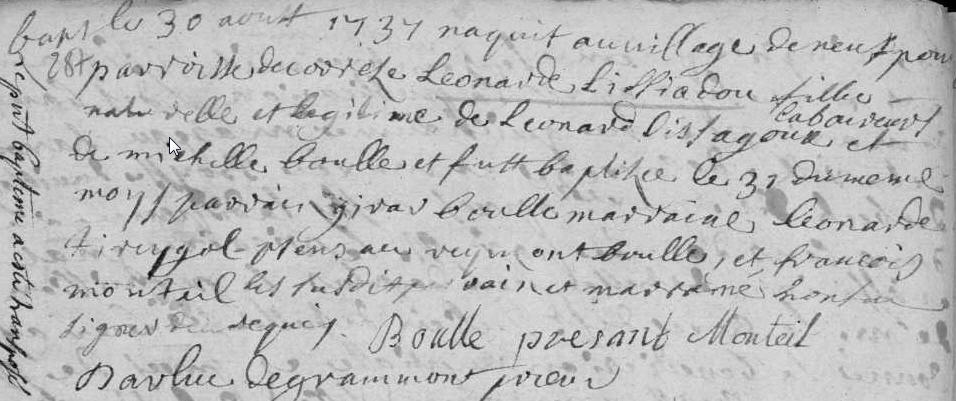 bapt le 30 aoust 1737 naquit au village de neufpon
28 parroisse de correze Leonarde Lissiadou fille
laboureurs
naturelle et legitime de Leonard Lissagoux et
de michelle boulle et futt baptisee le 31 du meme
moys parrain giras boulle marraine leonarde
tireygol presens au reymont boulle, et francois
monteil les susdits parrain et marraine nont su
signer de requis. Boulle presant Monteil
Darluc de grammont prieur